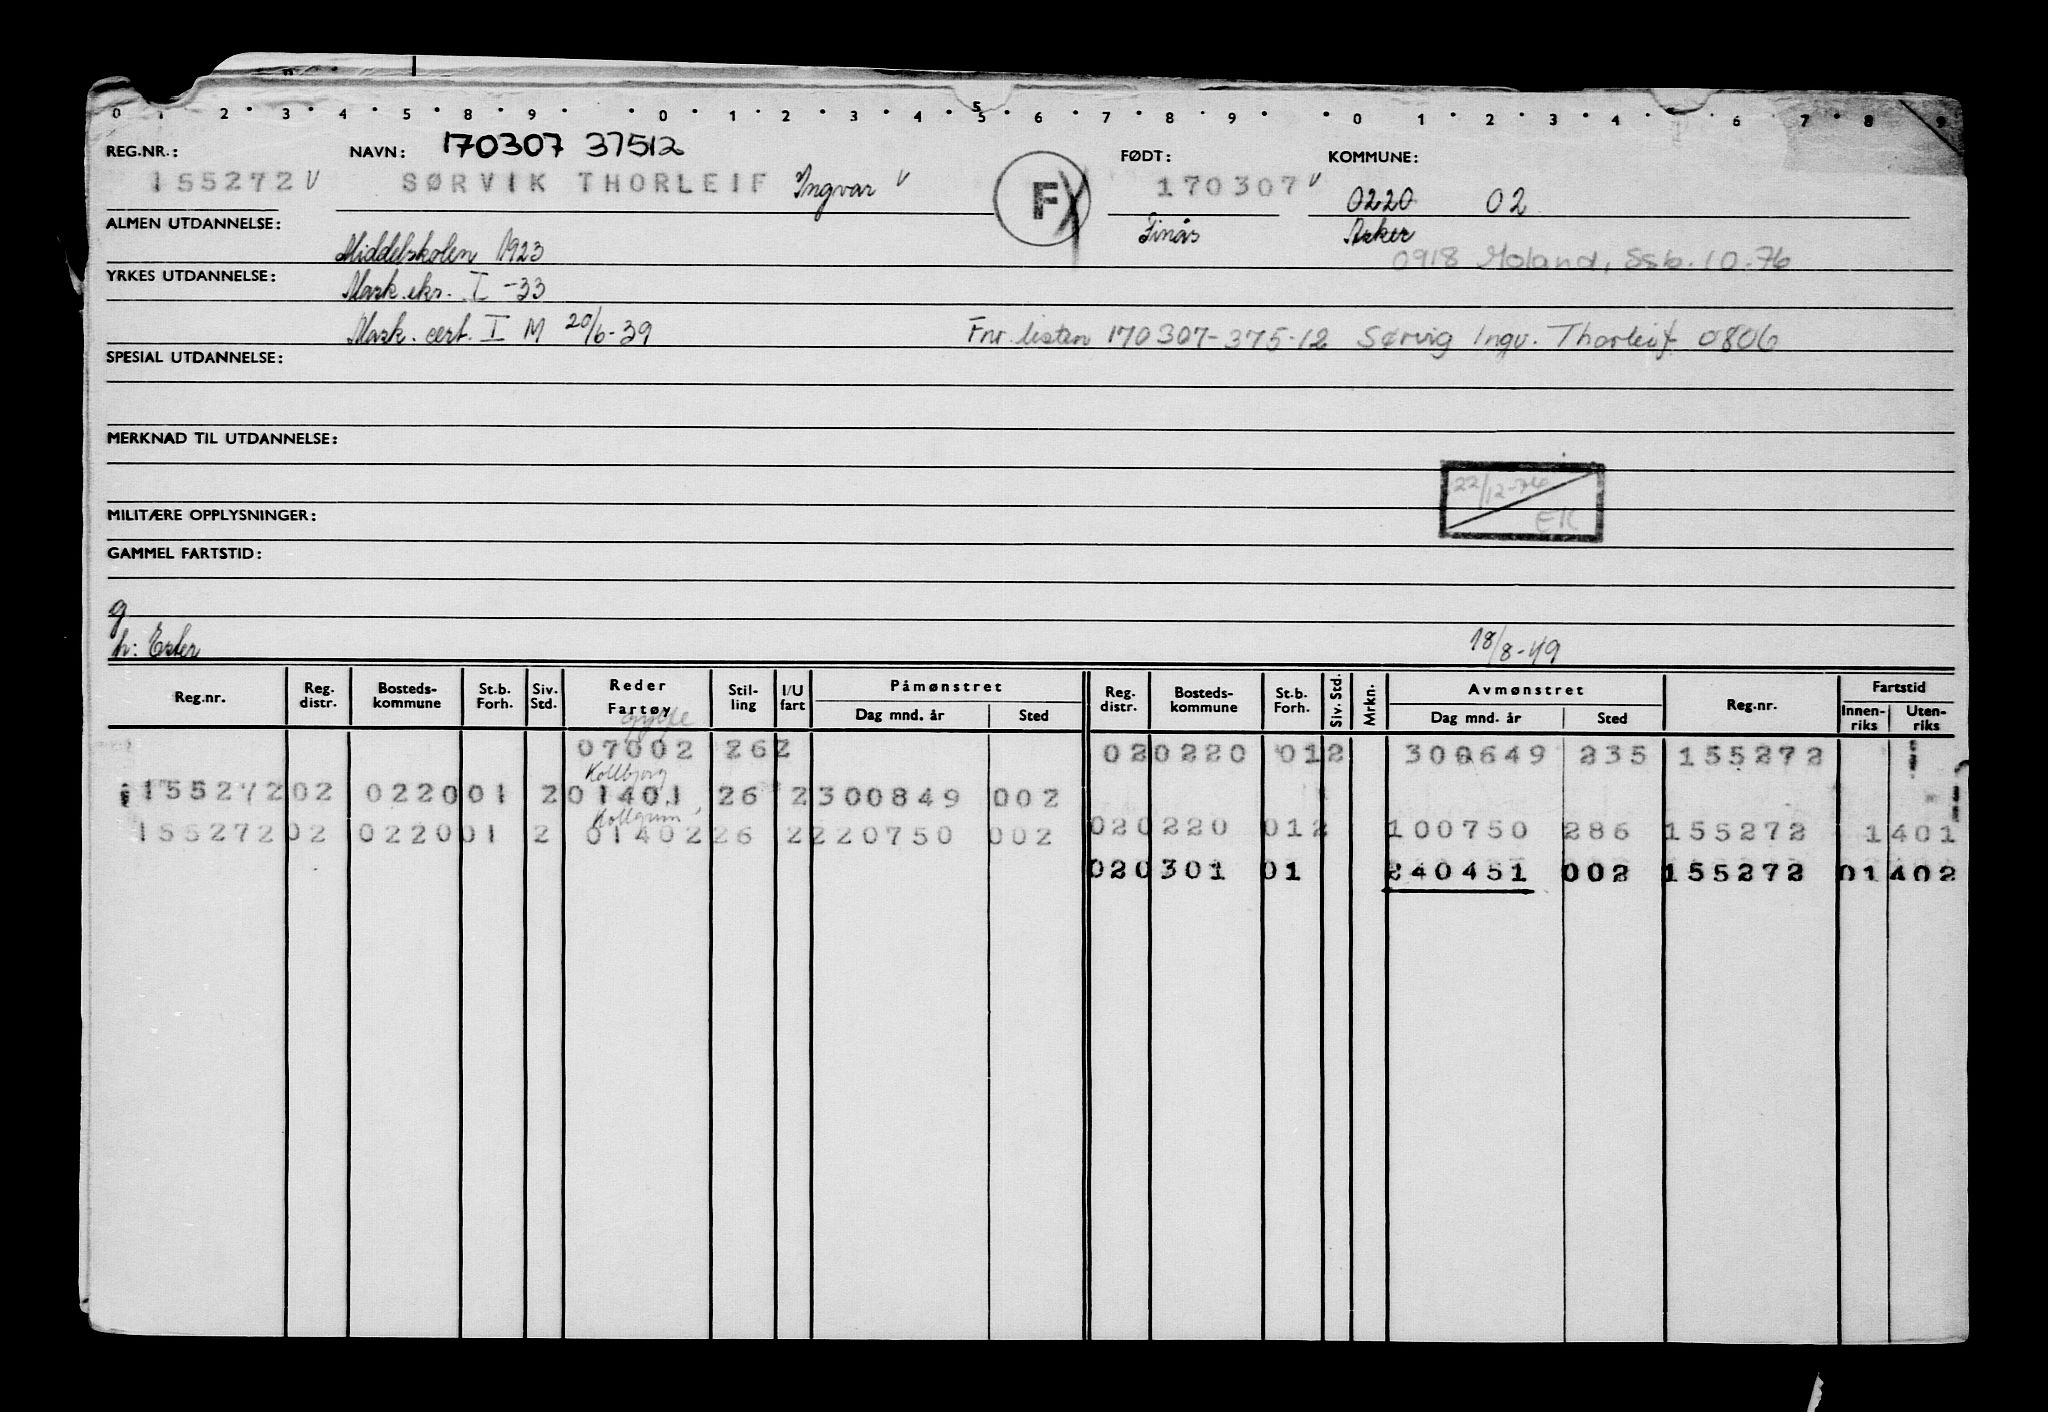 0 1 2 3 4 5 6 7 8 9 0 1 2 3 4 5 6 7 8 9 0 1 2 3 4 5 6 7 8 9
REG.NR.: NAVN: 170307 37512 FØDT: KOMMUNE:
155272 V SØRVIK THORLEIF Ingvar V F 170307 V 0220 02
ALMEN UTDANNELSE: Middelskolen 1923 Asker
0918 Moland, Ssb. 10-76
YRKES UTDANNELSE: Mask. eks. I -33
Mask. cert. I M 20/6-39 Fnr. listen 170307-375-12 Sørvig Ingv. Thorleif 0806
SPESIAL UTDANNELSE:
MERKNAD TIL UTDANNELSE:
22/12-76
EK
MILITÆRE OPPLYSNINGER:
GAMMEL FARTSTID:
g
h: Ester 18/8-49
Reg.nr. Reg. distr. Bosteds-kommune St.b. Forh. Siv. Std. Reder Fartøy Stil-ling I/U fart Påmønstret Dag mnd. år Sted Reg. distr. Bosteds-kommune St.b. Forh. Siv. Std. Mrkn. Avmønstret Dag mnd. år Sted Reg.nr. Fartstid Innen-riks Uten-riks
07002 26 2 02 0220 01 2 300649 235 155272
Kollbjørg
155272 02 0220 01 2 01401 26 2 300849 002
Kollgrim
155272 02 0220 01 2 01402 26 2 220750 002 02 0220 01 2 100750 286 155272 1 401
02 0301 01 240451 002 155272 01 402